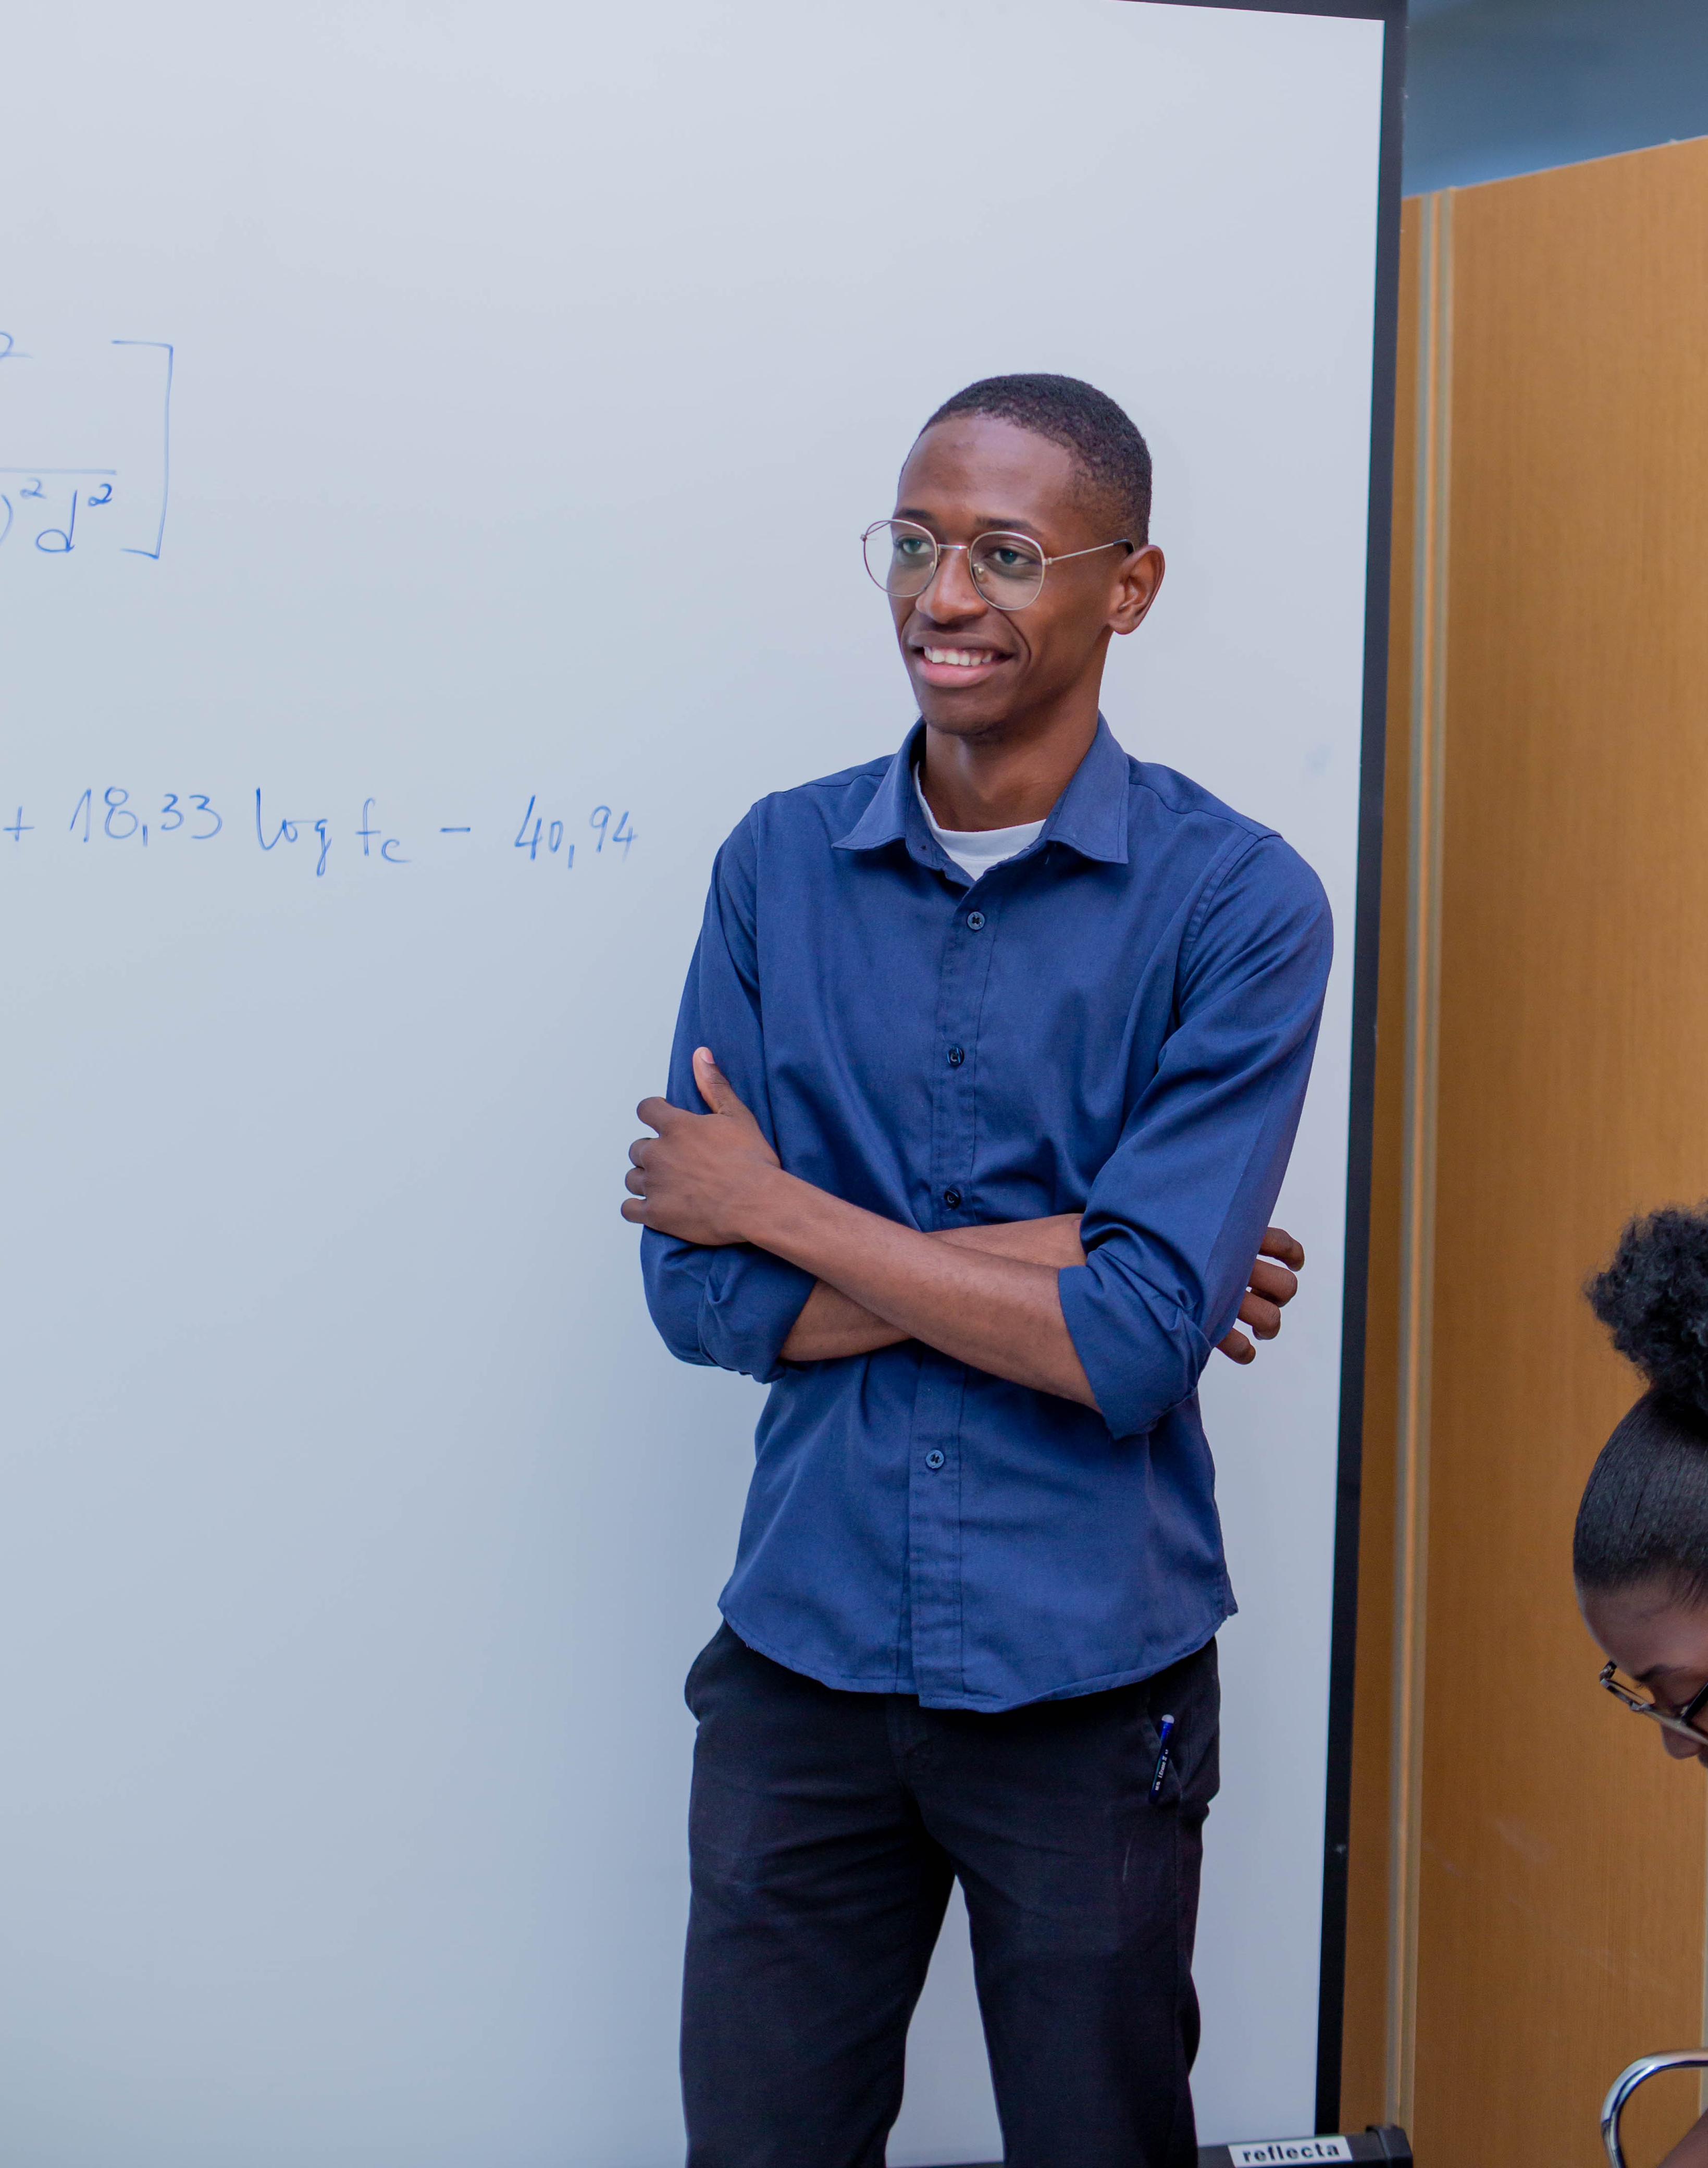 2 ]
)²d²
+ 18,33 log fc - 40,94
reflecta